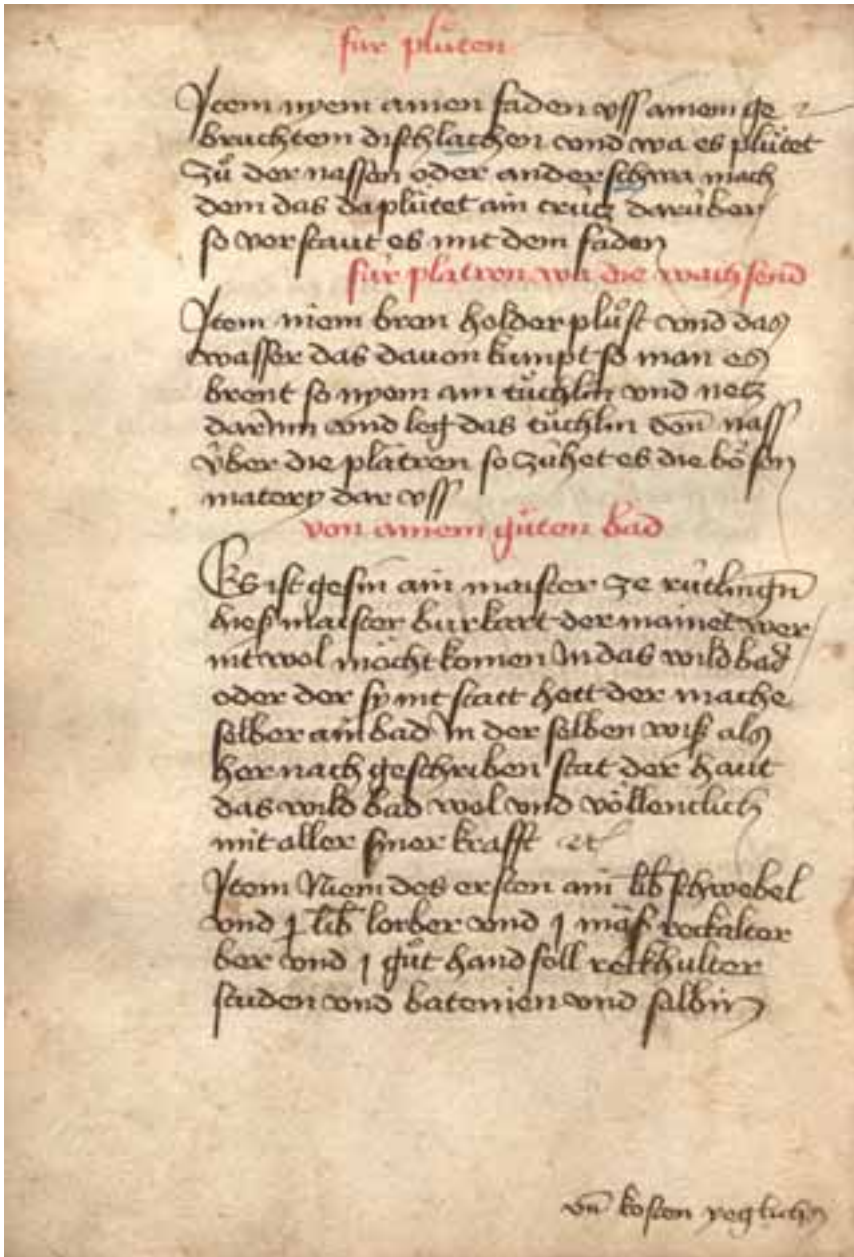 für plüten
Item nyem ainen faden vss ainem ge
bruchtem dischlachen vnd wa es plütet
zů der nassen oder anderschwa mach
dem das da plütet ain crütz darüber
so verstaut es mit dem faden
für platren wa die wachsend
Item niem bren holderplůst vnd das
wasser das dauon kumpt so man es
brent so nyem ain tüchlin vnd netz
darinn vnd leg das tüchlin den̄ nass
über die platren so zühet es die bösen
matery dar vss
von ainem gůten bad
Es ist gesin ain maister ze rütlingn̄
hieß maister burkart der mainet wer
nit wol möcht komen In das wildbad
oder der sy nit statt hett der mache
selber ain bad In der selben wiß als
her nach geschriben stat der haut
das wild bad wol vnd völlenclich
mit aller siner krafft ꝛc
Item Niem des ersten ain lib̄ schwebel
vnd j lib̄ lorber vnd j mäß reckalter
ber vnd j gůt hand foll reckhulter
studen vnd batenien vnd salbin
vn̄ kosten yeglichs